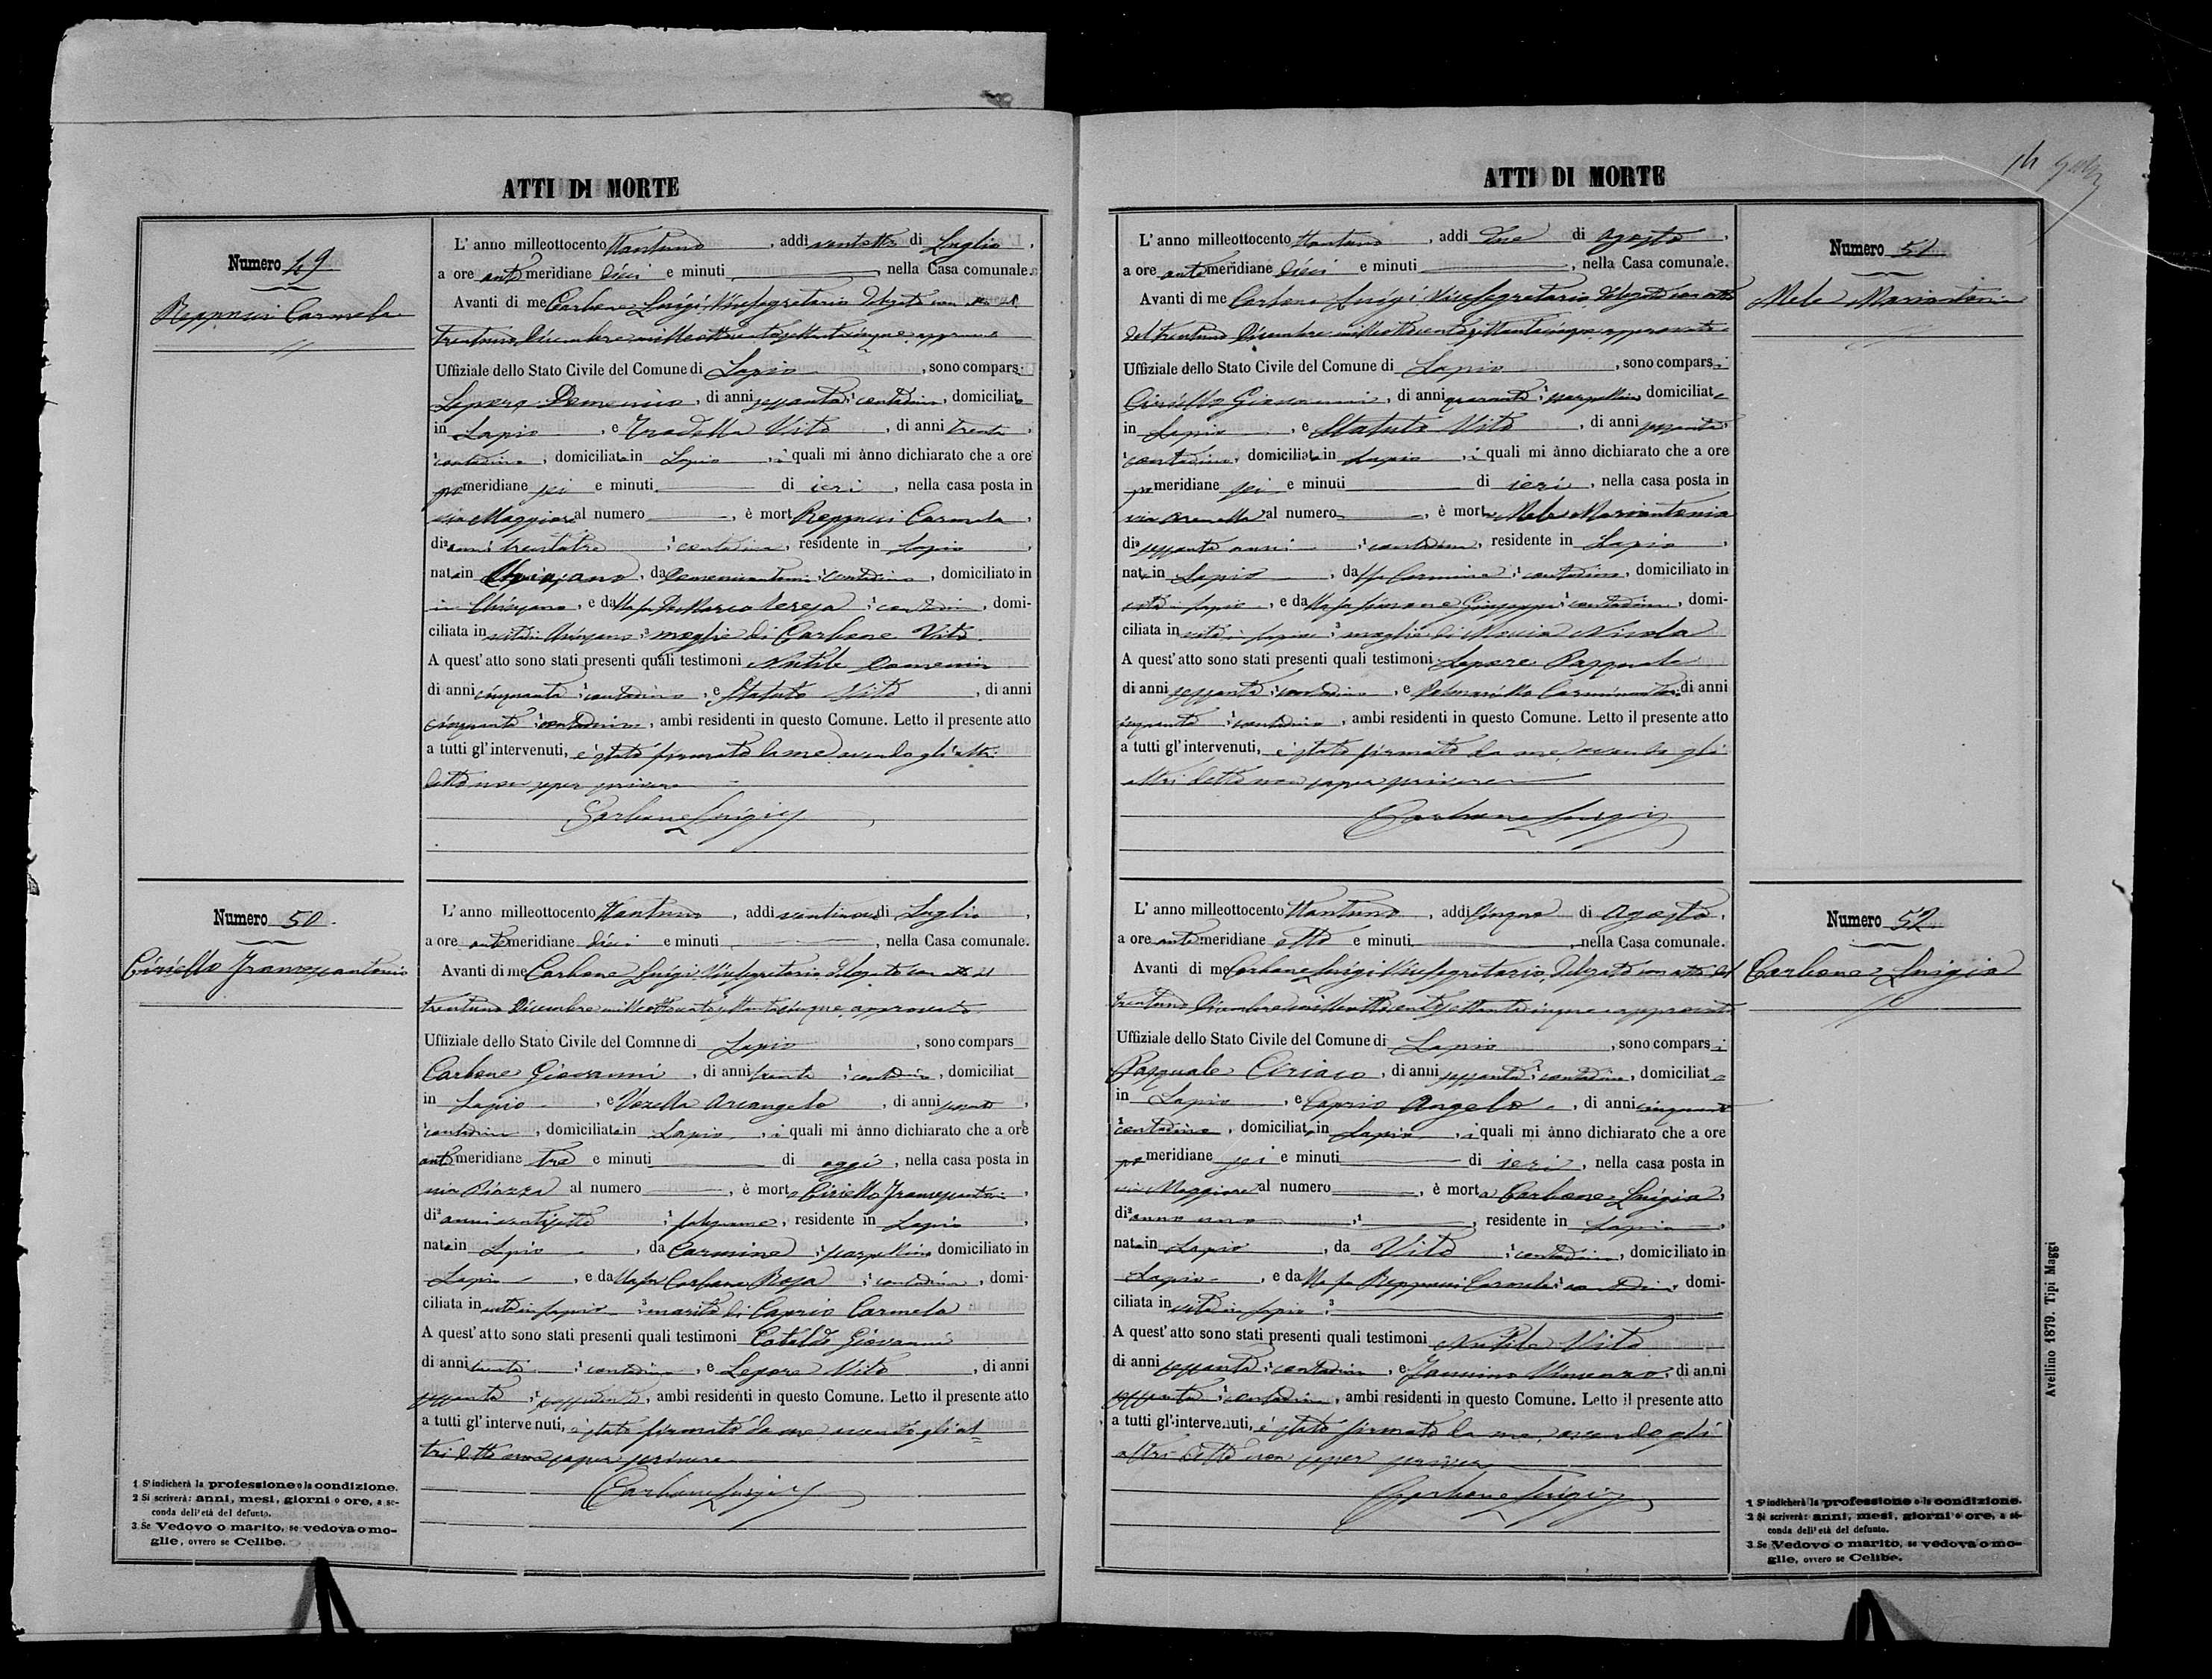 ATTI DI MORTE
Numero 49
Reppucci Carmela
L'anno milleottocento ottantuno, addì ventotto di Luglio,
a ore antimeridiane dieci e minuti, nella Casa comunale.
Avanti di me Carbone Luigi Vicesegretario delegato con atto del
trentuno Dicembre milleottocentosettantacinque approvato
Uffiziale dello Stato Civile del Comune di Lapio, sono comparsi
Lepore Domenico, di anni sessanta, 1 contadino, domiciliato
in Lapio, e Iradella Vito, di anni trenta,
1 contadino, domiciliato in Lapio, i quali mi ànno dichiarato che a ore
pomeridiane sei e minuti di ieri, nella casa posta in
via Maggiore al numero, è morta Reppucci Carmela,
di 2 anni trentatre, 1 contadina, residente in Lapio,
nata in, da Domenicantonio, 1 contadino, domiciliato in
in Chiusano, e dalla fu De Marco Teresa, 1 contadina, domi-
ciliata in vita in Chiusano, 3 moglie di Carbone Vito.
A quest'atto sono stati presenti quali testimoni Nutile Domenico
di anni cinquanta, 1 contadino, e Statuto Vito, di anni
cinquanta, 1 contadino, ambi residenti in questo Comune. Letto il presente atto
a tutti gl'intervenuti, è stato firmato da me avendo gli altri
detto non saper scrivere
Carbone Luigi
Numero 50
Ciriello Francescantonio
L'anno milleottocento ottantuno, addì ventinove di Luglio,
a ore antimeridiane dieci e minuti, nella Casa comunale.
Avanti di me Carbone Luigi Vicesegretario delegato con atto del
trentuno Dicembre milleottocentosettantacinque approvato
Uffiziale dello Stato Civile del Comnne di Lapio, sono compars
Carbone Giovanni, di anni trenta, 1 contadino, domiciliat
in Lapio, e Vozella Arcangelo, di anni,
1 contadino, domiciliato in Lapio, i quali mi ànno dichiarato che a ore
antimeridiane tre e minuti di oggi, nella casa posta in
via Piazza al numero, è morto Ciriello Francescantonio,
di 2 anni ventisette, 1 falegname, residente in Lapio,
nato in Lapio, da Carmine, 1 scarpellino domiciliato in
Lapio, e dalla fu Carbone Rosa, 1 contadina, domi-
ciliata in vita in Lapio, 3 marito di Caprio Carmela
A quest'atto sono stati presenti quali testimoni Cataldo Giovanni
di anni trenta, 1 contadino, e Lepore Vito, di anni
sessanta, 1 possidente, ambi residenti in questo Comune. Letto il presente atto
a tutti gl'intervenuti, è stato firmato da me avendo gli al=
tri detto non saper scrivere
Carbone Luigi
1 S'indicherà la professione o la condizione.
2 Si scriverà: anni, mesi, giorni o ore, a se-
conda dell'età del defunto.
3 Se Vedovo o marito, se vedova o mo-
glie, ovvero se Celibe.
ATTI DI MORTE
Numero 51
Mele Mariantonia
L'anno milleottocento ottantuno, addì due di Agosto,
a ore antimeridiane dieci e minuti, nella Casa comunale.
Avanti di me Carbone Luigi Vicesegretario delegato con atto
del trentuno Dicembre milleottocentosettantacinque approvato
Uffiziale dello Stato Civile del Comune di Lapio, sono comparsi
Ciriello Giovanni, di anni quaranta, 1 scarpellino, domiciliato
in Lapio, e Statuto Vito, di anni sessanta,
1 contadino, domiciliato in Lapio, i quali mi ànno dichiarato che a ore
pomeridiane sei e minuti di ieri, nella casa posta in
via Arenella al numero, è morta Mele Mariantonia
di 2 sessanta anni, 1 contadina, residente in Lapio,
nata in Lapio, da fu Carmine, 1 contadino, domiciliato in
vita in Lapio, e dalla fu Simone Giuseppa, 1 contadina, domi-
ciliata in vita in Lapio, 3 moglie di Nicola
A quest'atto sono stati presenti quali testimoni Lepore Pasquale
di anni sessanta, 1 contadino, e Palmariello Carminantonio, di anni
cinquanta, 1 contadino, ambi residenti in questo Comune. Letto il presente atto
a tutti gl'intervenuti, è stato firmato da me, avendo gli
altri detto non saper scrivere
Carbone Luigi
Numero 52
Carbone Luigia
L'anno milleottocento ottantuno, addì cinque di Agosto,
a ore antimeridiane otto e minuti, nella Casa comunale.
Avanti di me Carbone Luigi Vicesegretario, delegato con atto del
trentuno Dicembre milleottocentosettantacinque approvato
Uffiziale dello Stato Civile del Comune di Lapio, sono comparsi
Pasquale Ciriaco, di anni sessanta, 1 contadino, domiciliato
in Lapio, e Caprio Angelo, di anni cinquanta
1 contadino, domiciliato in Lapio, i quali mi ànno dichiarato che a ore
pomeridiane sei e minuti di ieri, nella casa posta in
via Maggiore al numero, è morta Carbone Luigia,
di 2 anno uno, 1, residente in Lapio,
nata in Lapio, da Vito, 1 contadino, domiciliato in
Lapio, e dalla fu Reppucci Carmela, 1 contadina, domi-
ciliata in vita in Lapio, 3
A quest'atto sono stati presenti quali testimoni Nutile Vito
di anni sessanta, 1 contadino, e Iannino Vincenzo, di anni
sessanta, 1 contadino, ambi residenti in questo Comune. Letto il presente atto
a tutti gl'intervenuti, è stato firmato da me, avendo gli
altri detto non saper scrivere
Carbone Luigi
1 S'indicherà la professione o la condizione.
2 Si scriverà: anni, mesi, giorni o ore, a se-
conda dell'età del defunto.
3 Se Vedovo o marito, se vedova o mo-
glie, ovvero se Celibe.
Avellino 1879. Tipi Maggi